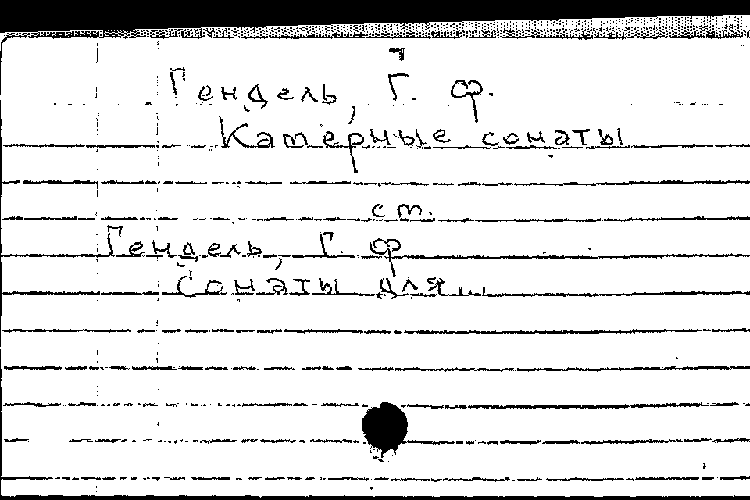 Гендель, Г. Ф.
Катерные сонаты
ст.
Гендель, Г. Ф
Сонаты для...